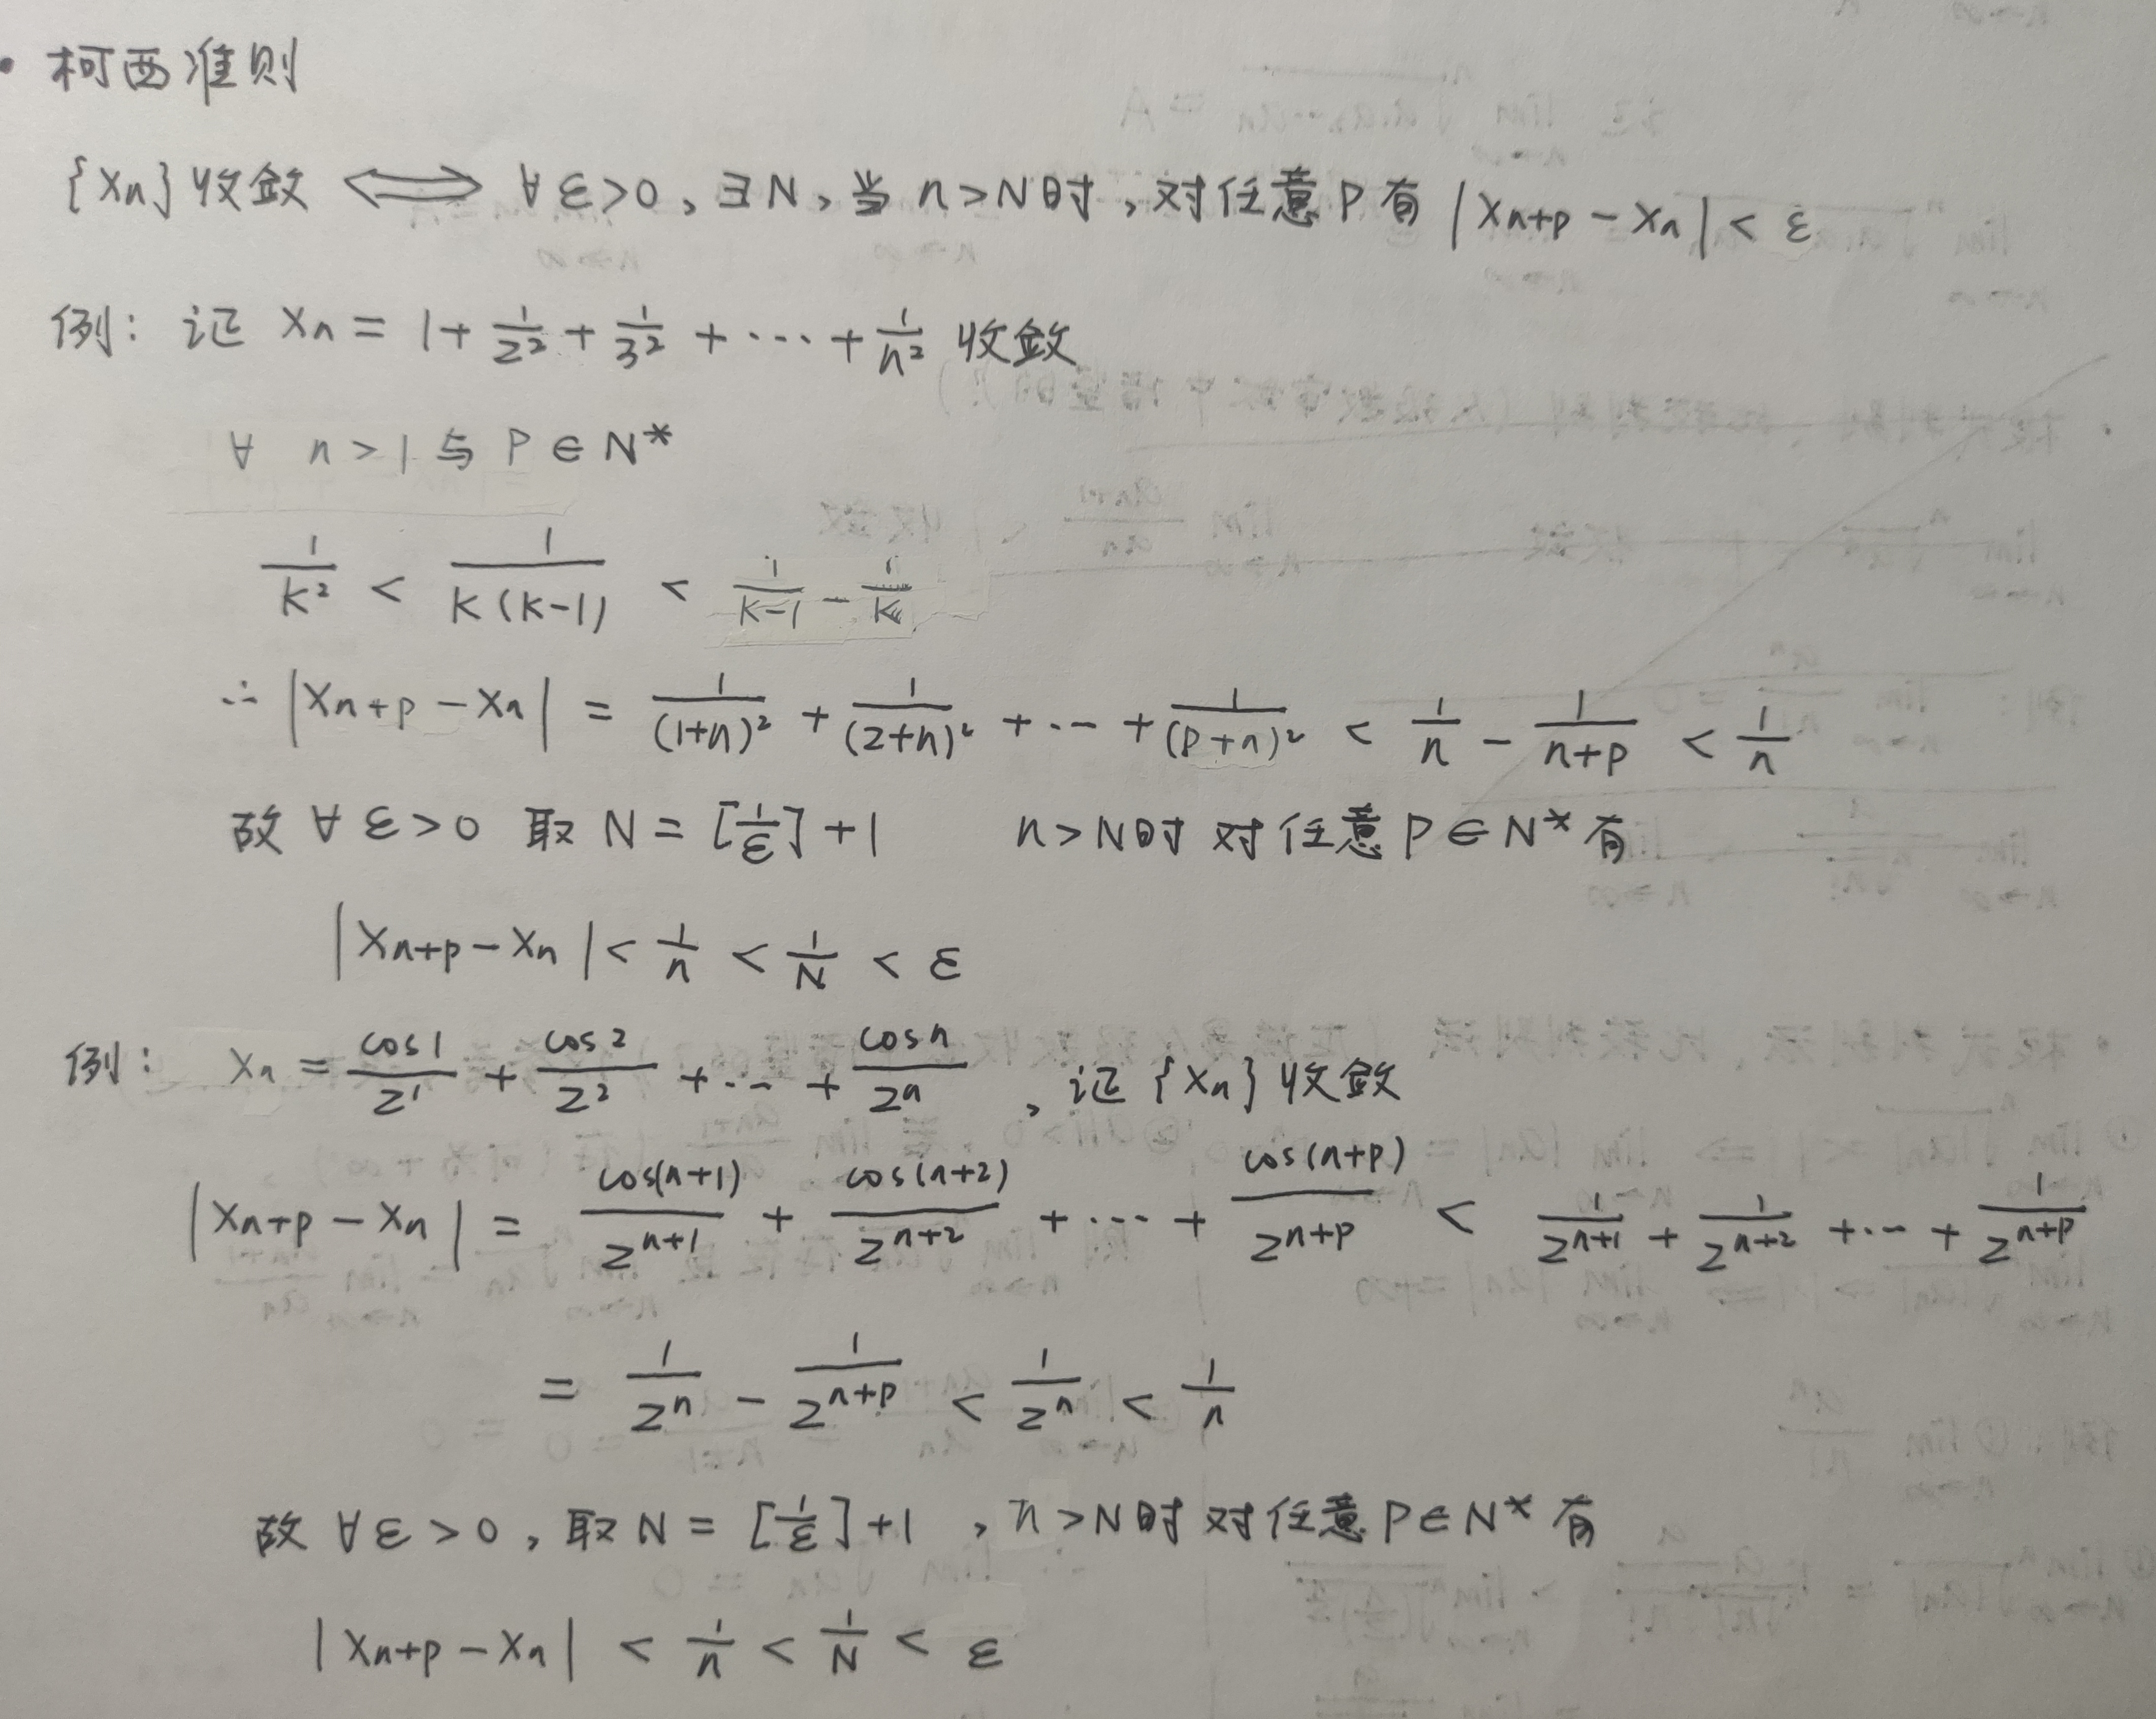 · 柯西准则
{Xn}收敛 ⟺ ∀ε>0, ∃N, 当 n>N时, 对任意P有 |Xn+p − Xn| < ε
例: 证 Xn = 1 + 1/2² + 1/3² + ··· + 1/n² 收敛
∀ n>1 与 P∈N*
1/K² < 1/K(K−1) < 1/K−1 − 1/K
∴ |Xn+p − Xn| = 1/(1+n)² + 1/(2+n)² + ··· + 1/(P+n)² < 1/n − 1/n+p < 1/n
故 ∀ε>0 取 N = [1/ε]+1 n>N时 对任意P∈N*有
|Xn+p − Xn| < 1/n < 1/N < ε
例: Xn = cos1/2¹ + cos2/2² + ··· + cosn/2ⁿ , 证{Xn}收敛
|Xn+p − Xn| = cos(n+1)/2ⁿ⁺¹ + cos(n+2)/2ⁿ⁺² + ··· + cos(n+p)/2ⁿ⁺ᵖ < 1/2ⁿ⁺¹ + 1/2ⁿ⁺² + ··· + 1/2ⁿ⁺ᵖ
= 1/2ⁿ − 1/2ⁿ⁺ᵖ < 1/2ⁿ < 1/n
故 ∀ε>0, 取N = [1/ε]+1 , n>N时 对任意P∈N*有
|Xn+p − Xn| < 1/n < 1/N < ε